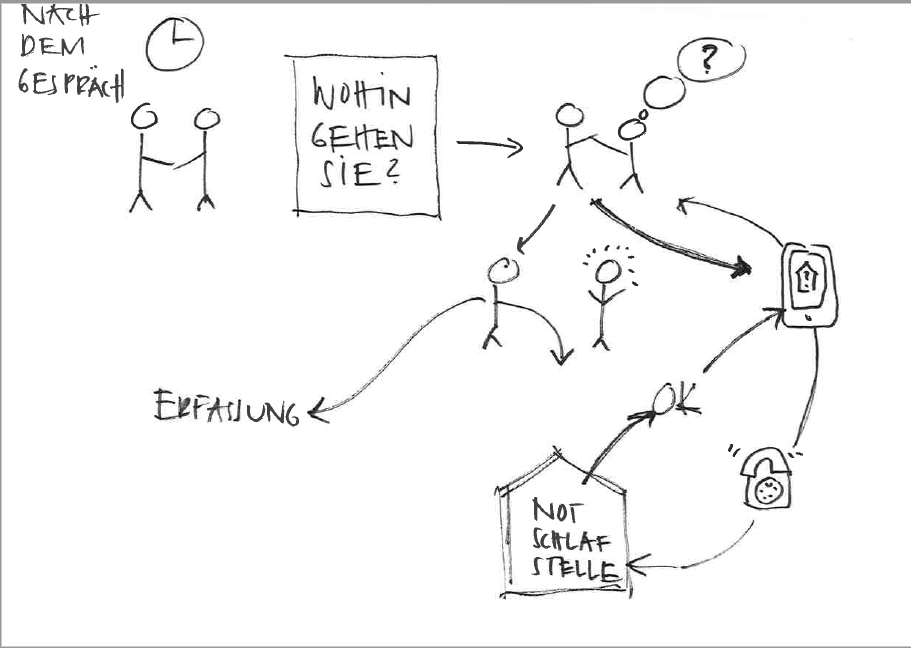 NACH
DEM
GESPRÄCH
WOHIN
GEHEN
SIE?
?
?
ERFASSUNG
OK
NOT
SCHLAF
STELLE